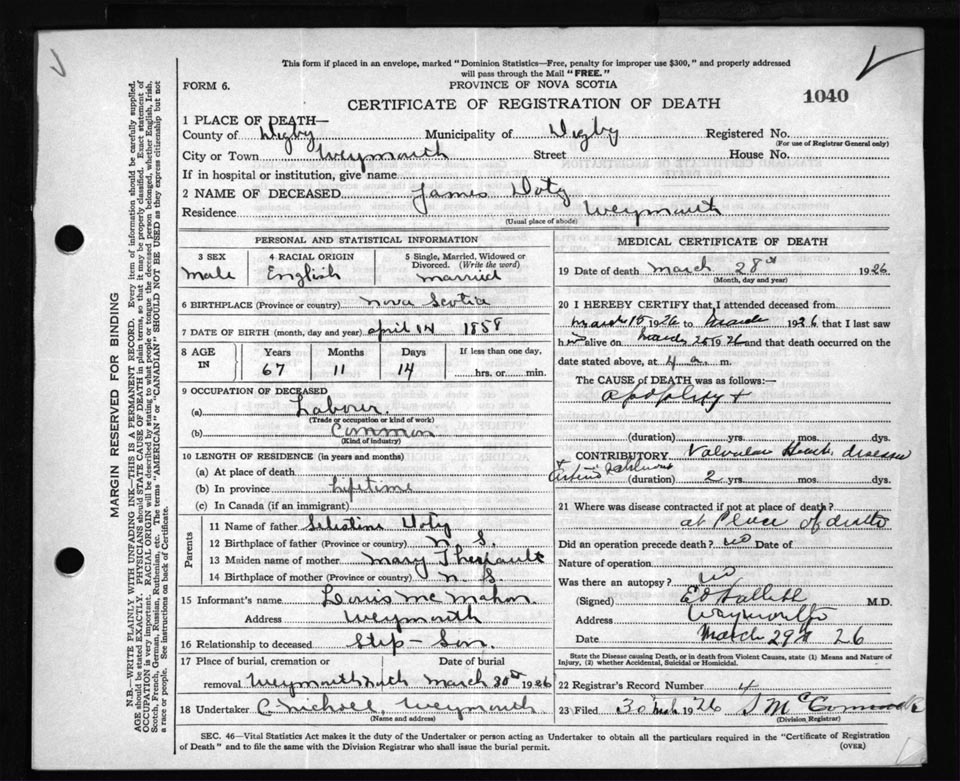 This form if placed in an envelope, marked "Dominion Statistics—Free, penalty for improper use $300," and properly addressed
will pass through the Mail "FREE."
FORM 6.
PROVINCE OF NOVA SCOTIA
CERTIFICATE OF REGISTRATION OF DEATH
1040
1 PLACE OF DEATH—
County of Digby Municipality of Digby Registered No.
(For use of Registrar General only)
City or Town Weymouth Street House No.
If in hospital or institution, give name
2 NAME OF DECEASED James Doty
Residence Weymouth
(Usual place of abode)
MARGIN RESERVED FOR BINDING
N.B.—WRITE PLAINLY WITH UNFADING INK—THIS IS A PERMANENT RECORD. Every item of information should be carefully supplied.
AGE should be stated EXACTLY. PHYSICIANS should STATE CAUSE OF DEATH in plain terms, so that it may be properly classified. Exact statement of
OCCUPATION is very important. RACIAL ORIGIN will be described by stating to what people or tongue the deceased person belonged, whether English, Irish,
Scotch, French, German, Russian, Ruthenian, etc. The terms "AMERICAN" or "CANADIAN" SHOULD NOT BE USED as they express citizenship but not
a race or people. See instructions on back of Certificate.
PERSONAL AND STATISTICAL INFORMATION
3 SEX 4 RACIAL ORIGIN 5 Single, Married, Widowed or
Divorced. (Write the word)
Male English married
6 BIRTHPLACE (Province or country) Nova Scotia
7 DATE OF BIRTH (month, day and year) April 14 1858
8 AGE IN Years Months Days If less than one day,
67 11 14 hrs. or min.
9 OCCUPATION OF DECEASED
(a) Labourer
(Trade or occupation or kind of work)
(b) Common
(Kind of industry)
10 LENGTH OF RESIDENCE (in years and months)
(a) At place of death
(b) In province Lifetime
(c) In Canada (if an immigrant)
Parents
11 Name of father Doty
12 Birthplace of father (Province or country) N. S.
13 Maiden name of mother Mary
14 Birthplace of mother (Province or country) N S
15 Informant's name Louis McMahon
Address Weymouth
16 Relationship to deceased Step-Son
17 Place of burial, cremation or Date of burial
removal Weymouth March 30th 1926
18 Undertaker C Nichoel, Weymouth
(Name and address)
MEDICAL CERTIFICATE OF DEATH
19 Date of death March 28th 1926
(Month, day and year)
20 I HEREBY CERTIFY that I attended deceased from
March 15 1926 to March 1926 that I last saw
him alive on March 1926 and that death occurred on the
date stated above, at 4 a. m.
The CAUSE OF DEATH was as follows:
apoplexy +
(duration) yrs. mos. dys.
CONTRIBUTORY Valvular Heart disease
(duration) 2 yrs. mos. dys.
21 Where was disease contracted if not at place of death?
at Place of death
Did an operation precede death? no Date of
Nature of operation
Was there an autopsy? no
(Signed) M.D.
Address Weymouth
Date March 29th 26
State the Disease causing Death, or in death from Violent Causes, state (1) Means and Nature of
Injury, (2) whether Accidental, Suicidal or Homicidal.
22 Registrar's Record Number 4
23 Filed 30 Mch 1926
(Division Registrar)
SEC. 46—Vital Statistics Act makes it the duty of the Undertaker or person acting as Undertaker to obtain all the particulars required in the "Certificate of Registration
of Death" and to file the same with the Division Registrar who shall issue the burial permit.
(OVER)